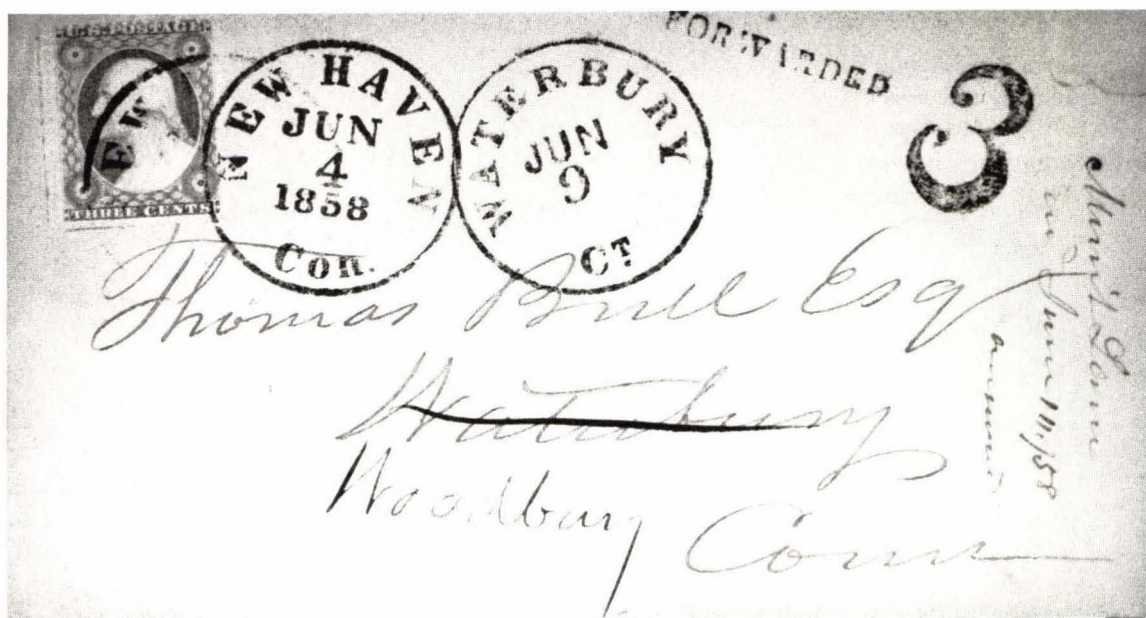 U.S. POSTAGE
THREE CENTS
EW
NEW HAVEN
JUN
4
1858
Con.
WATERBURY
JUN
9
CT
FORWARDED
3
Thomas Bull Esq
Waterbury
Woodbury
Conn
June